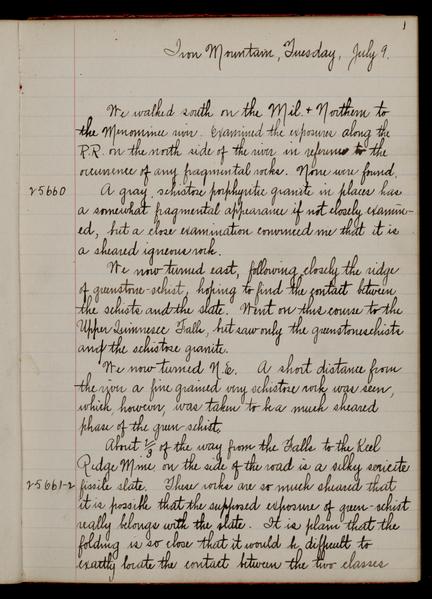 1
Iron Mountain, Tuesday, July 9.
We walked south on the Mil. & Northern to
the Menominee river. Examined the exposures along the
R.R. on the north side of the river in reference to the
ocurrence of any fragmental rocks. None were found.
25660 A gray, schistose porphyritic granite in places has
a somewhat fragmental appearance if not closely examin-
ed, but a close examination convinced me that it is
a sheared igneous rock.
We now turned east, following closely the ridge
of greenstone-schist, hoping to find the contact between
the schists and the slate. Went on this course to the
Upper Quinnesec Falls, but saw only the greenstoneschists
and the schistose granite.
We now turned N.E. A short distance from
the river a fine grained very schistose rock was seen,
which, however, was taken to be a much sheared
phase of the green-schist.
About 1/3 of the way from the Falls to the Keel
Ridge Mine on the side of the road is a silky sericite
25661-2 fissile slate. These rocks are so much sheared that
it is possible that the supposed exposure of green-schist
really belongs with the slate. It is plain that the
folding is so close that it would be difficult to
exactly locate the contact between the two classes